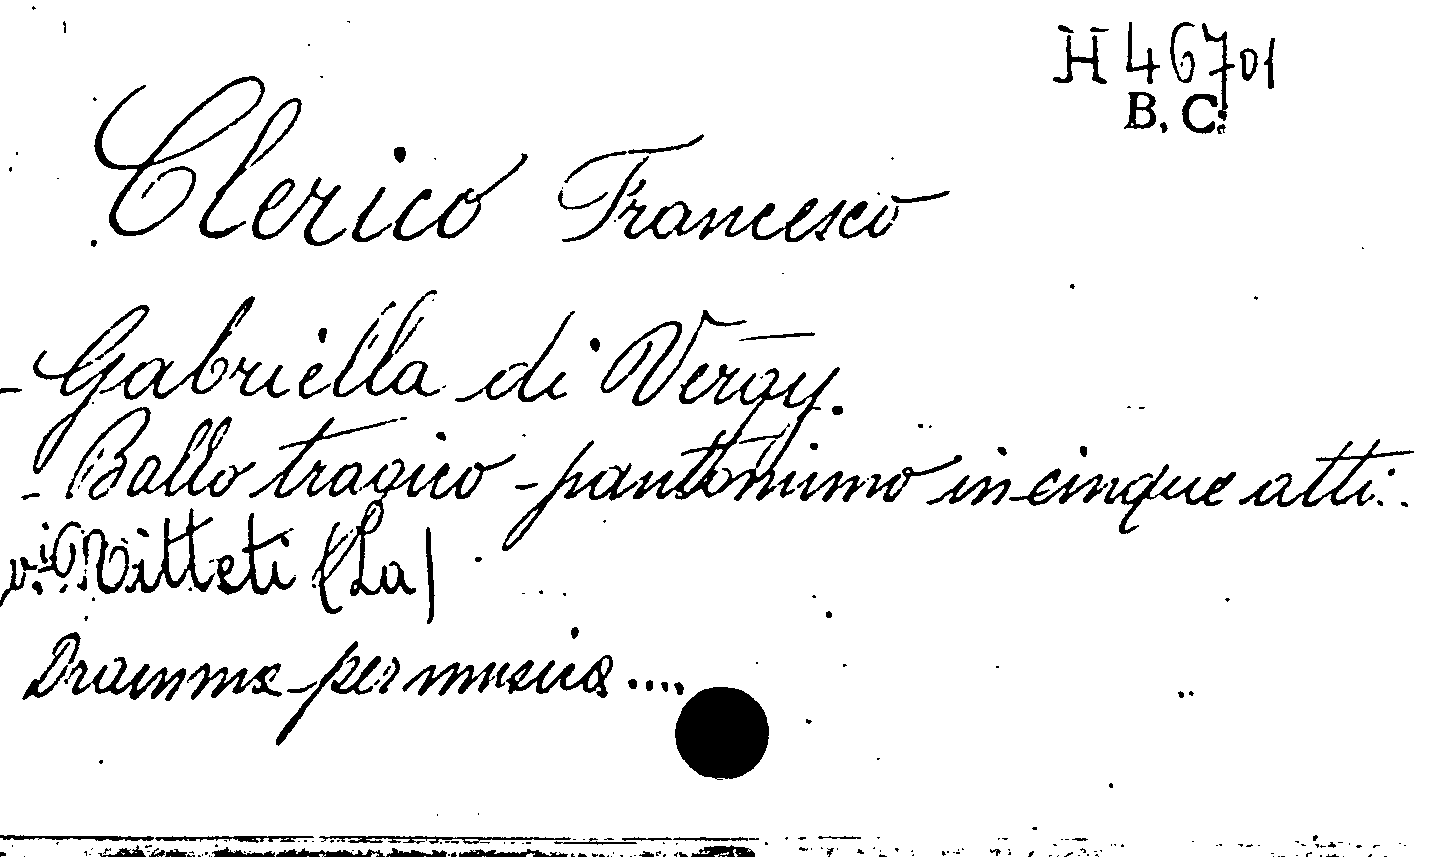 H 46701
B. C.
Clerico Francesco
- Gabriella di Vergy.
- Ballo tragico - pantomimo in cinque atti..
vi: Nitteti (La)
Dramma per musica ....